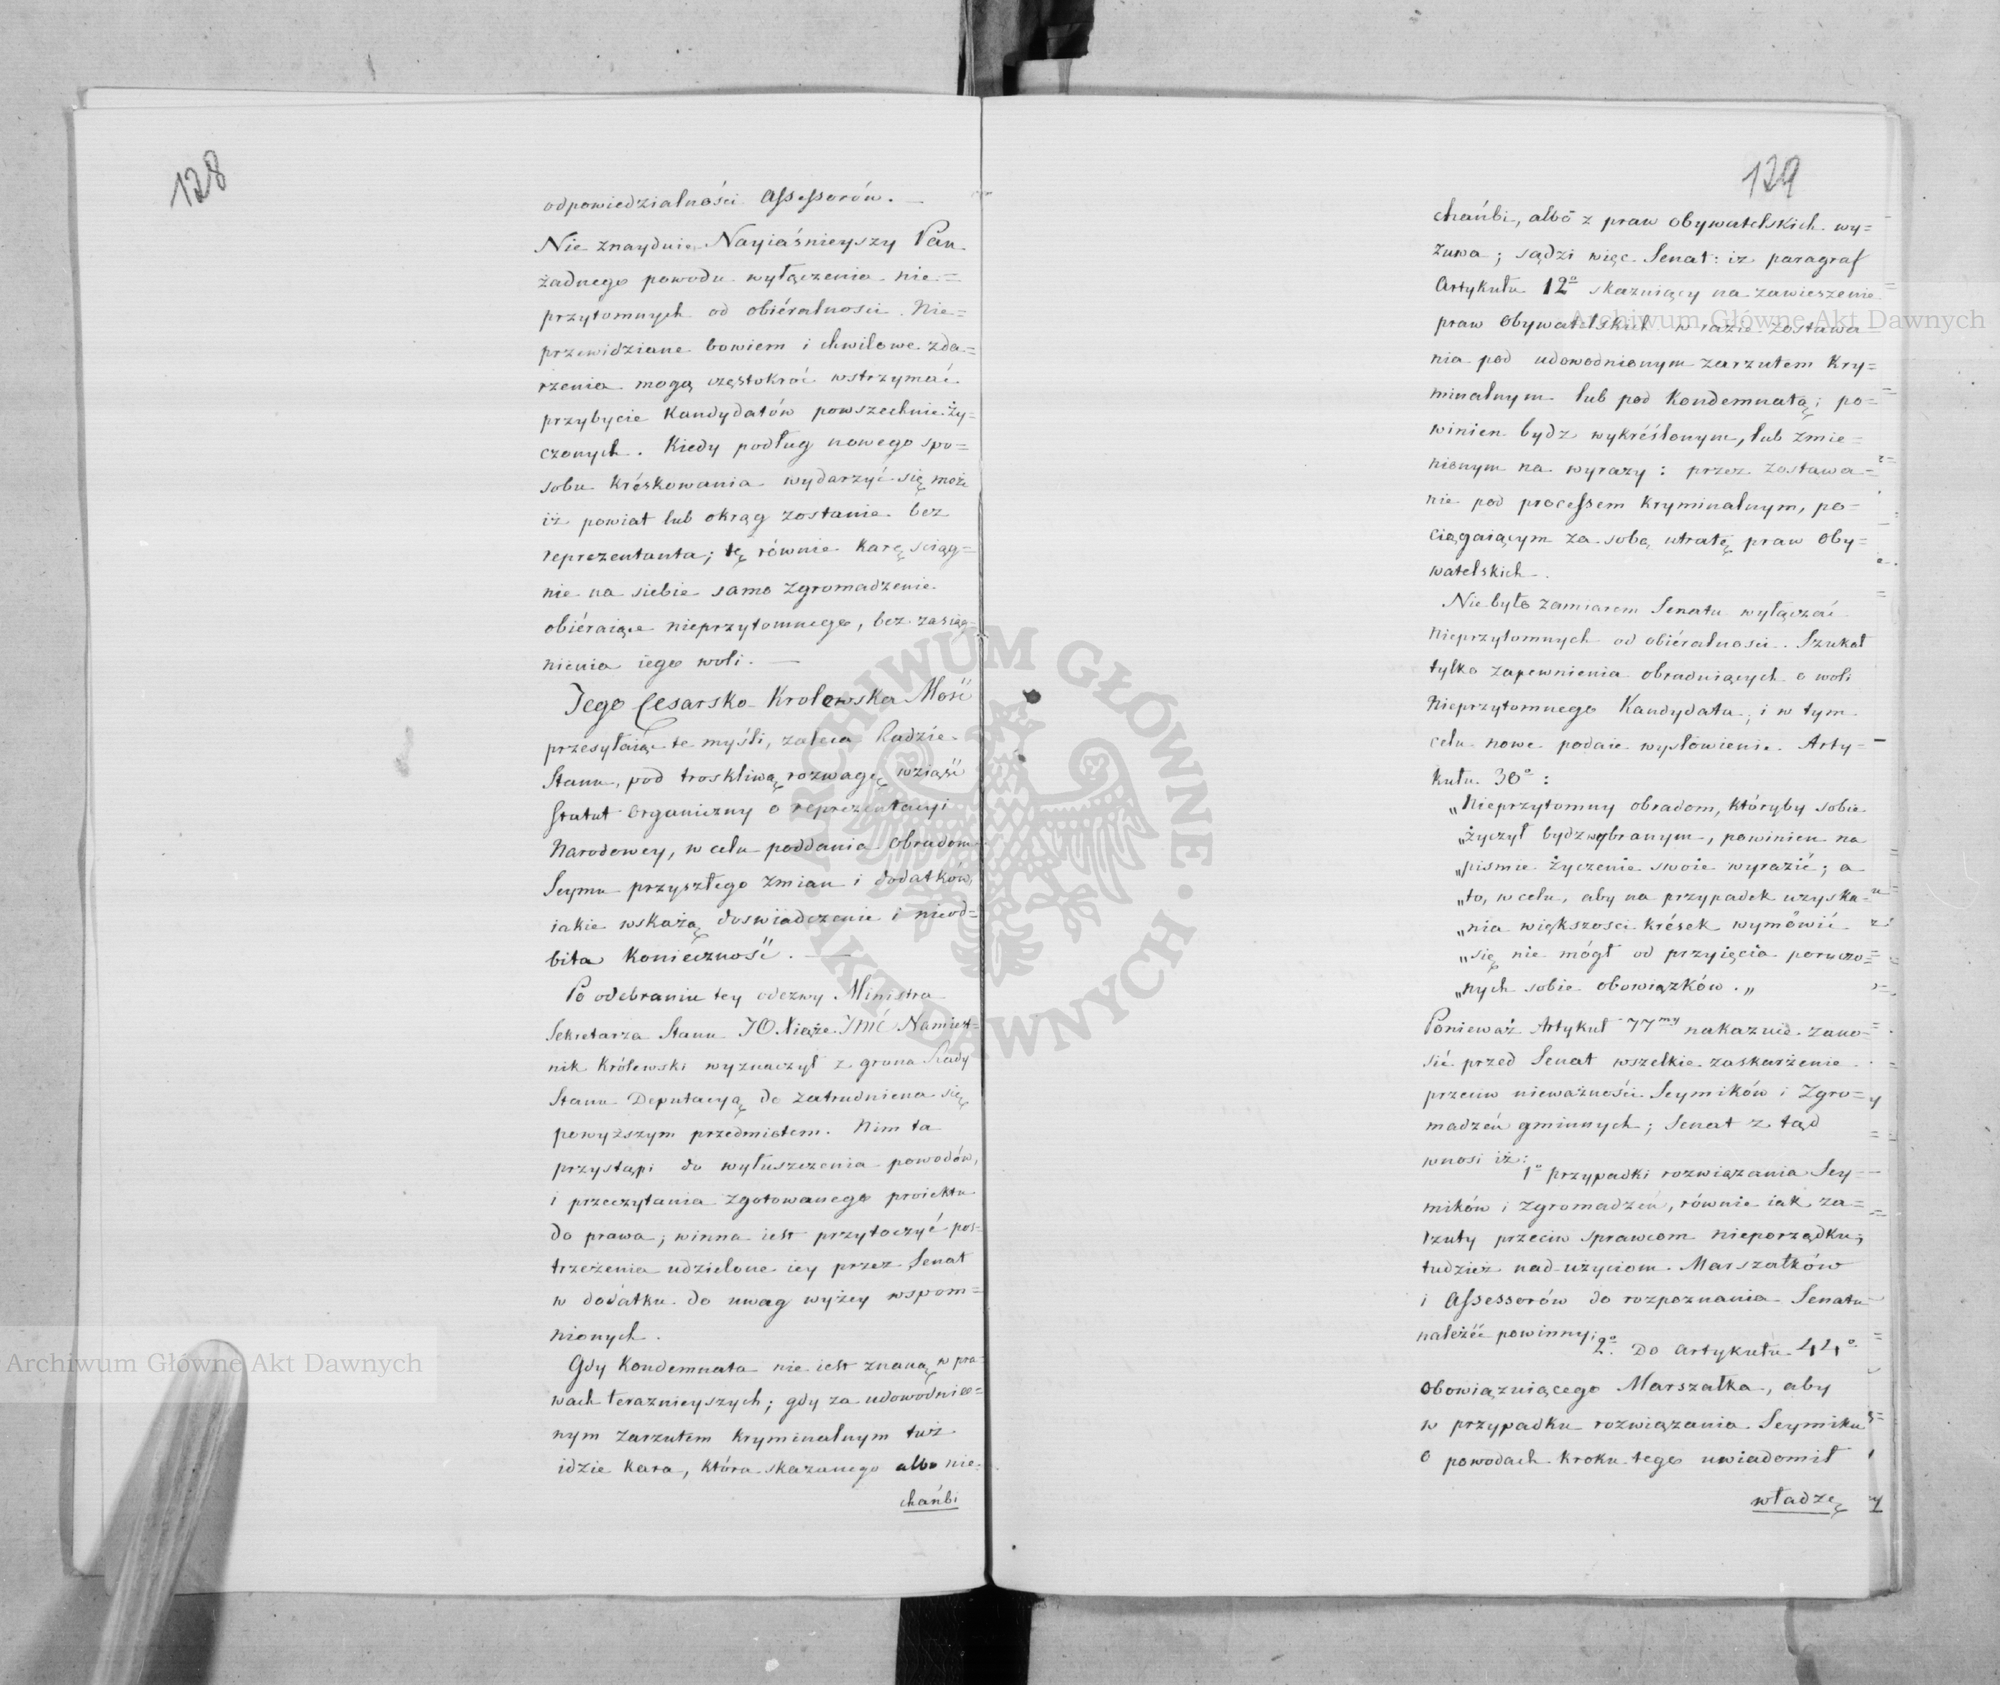 128
odpowiedzialności Assessorów. —
Nie znayduie Nayiaśnieyszy Pan
żadnego powodu wyłączenia nie=
przytomnych od obiéralnosci. Nie=
przewidziane bowiem i chwilowe zda=
rzenia mogą częstokroć wstrzymać
przybycie Kandydatów powszechnie ży=
czonych. Kiedy podług nowego spo=
sobu kréskowania wydarzyć się może
iż powiat lub okrąg zostanie bez
reprezentanta; tę równie karę ściąg=
nie na siebie samo zgromadzenie
obiéraiące nieprzytomnego, bez zasiąg=
nienia iego woli. —
Jego Cesarsko-Krolewska Mość
przesyłaiąc te myśli, zaleca Radzie
Stanu, pod troskliwą rozwagę wziąść
Statut Organiczny o reprezentacyi
Narodowey, w celu poddania Obradom
Seymu przyszłego zmian i dodatków,
iakie wskażą doswiadczenie i nieod=
bita konieczność. —
Po odebraniu tey odezwy Ministra
Sekretarza Stanu JO Xiąże JMć Namiest=
nik Królewski wyznaczył z grona Rady
Stanu Deputacyą do zatrudniena się
powyższym przedmiotem. Nim ta
przystąpi do wyłuszczenia powodów,
i przeczytania zgotowanego proiektu
do prawa; winna iest przytoczyć pos=
trzeżenia udzielone iey przez Senat
w dodatku do uwag wyżey wspom=
nionych.
Gdy Kondemnata nie iest znaną w pra=
wach teraznieyszych; gdy za udowodnio=
nym zarzutem kryminalnym tuż
idzie kara, która skazanego albo nie=
chańbi
129
chańbi, albo z praw obywatelskich wy=
zuwa; sądzi więc Senat: iż paragraf
Artykułu 12º skazuiący na zawieszenie
praw Obywatelskich w razie zostawa
nia pod udowodnionym zarzutem kry=
minalnym lub pod Kondemnatą; po=
winien bydz wykréślonym, lub zmie=
nionym na wyrazy: przez zostawa=
nie pod processem kryminalnym, po=
ciągaiącym za sobą utratę praw Oby=
watelskich.
Nie było zamiarem Senatu wyłączać
Nieprzytomnych od obiéralnosci. Szukał
tylko zapewnienia obraduiących o woli
Nieprzytomnego Kandydata; i w tym
celu nowe podaie wysłowienie Arty=
kułu 30º:
„Nieprzytomny obradom, któryby sobie
„życzył bydz wybranym, powinien na
„pismie życzenie swoie wyrazić; a
„to, w celu, aby na przypadek uzyska=
„nia większosci krések wymówić
„się nie mógł od przyięcia poruczo=
„nych sobie obowiązków.„
Ponieważ Artykuł 77my nakazuie zano=
sić przed Senat wszelkie zaskarżenie
przeciw nieważności Seymików i Zgro=
madzeń gminnych; Senat z tąd
wnosi iż:
1º przypadki rozwiązania Sey=
mików i zgromadzeń, równie iak za=
rzuty przeciw sprawcom nieporządku;
tudzież nad-użyciom Marszałków
i Assessorów do rozpoznania Senatu
należéć powinny;
2º. Do Artykułu 44º
Obowiązuiącego Marszałka, aby
w przypadku rozwiązania Seymiku
o powodach kroku tego uwiadomił
władzę
Archiwum Główne Akt Dawnych
Archiwum Główne Akt Dawnych
ARCHIWUM GŁÓWNE • AKT DAWNYCH •